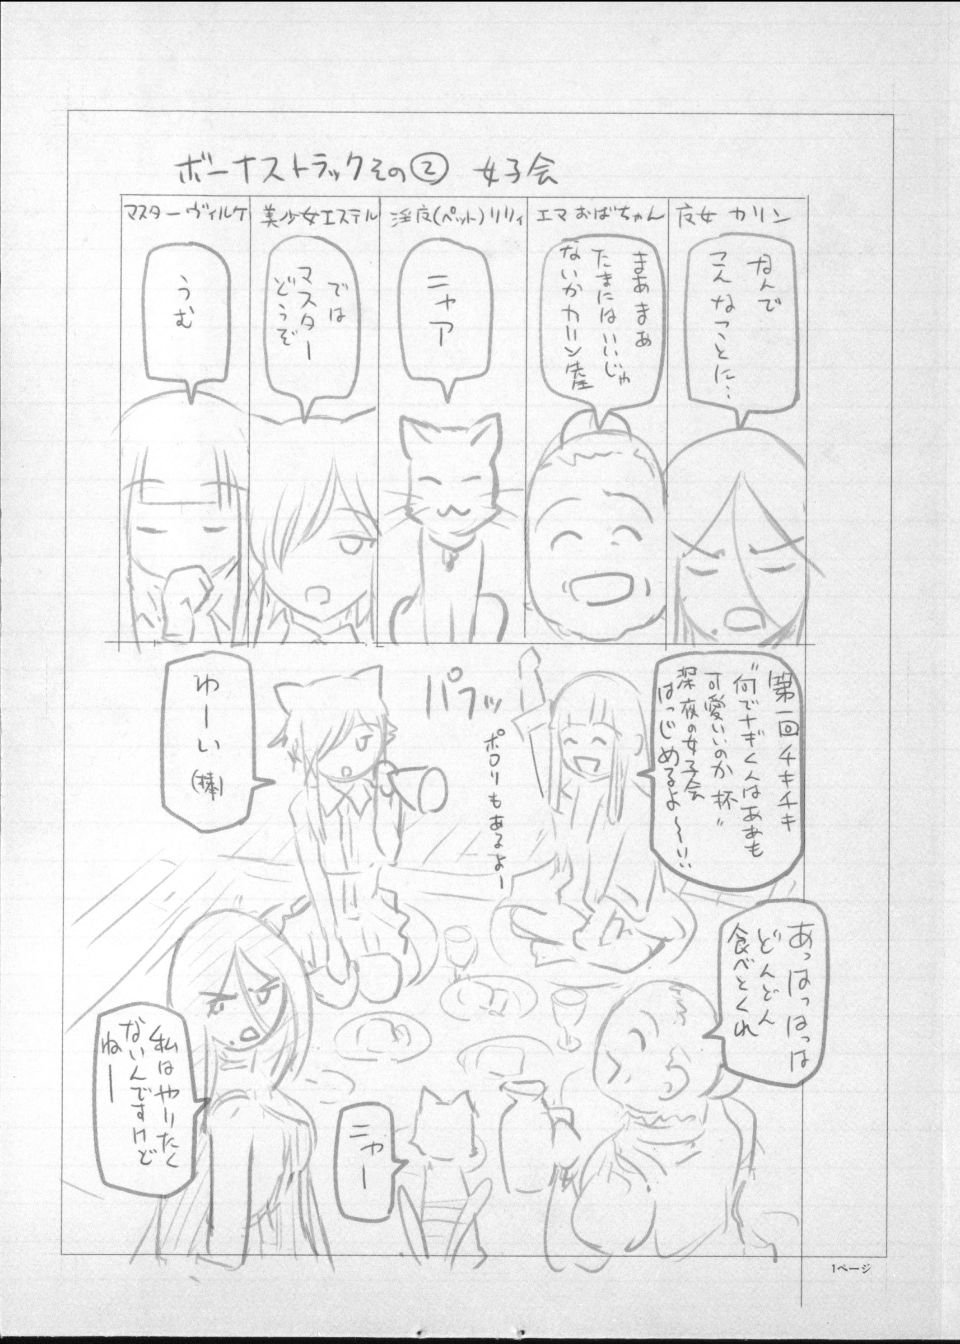 ボーナストラックその② 女子会
皮女 カリン
エマおばちゃん
淫皮(ペット)リリィ
美少女エステル
マスターヴィルケ
なんで
こんなことに…
まあまあ
たまにはいいじゃ
ないかカリン産
ニャア
では
マスター
どうぞ
うむ
第一回チキチキ
"何でナギくんはああも
可愛いいのか杯"
深夜の女子会
はっじめるよ〜!!
パフッ
ポロリもあるよー
わーい
(棒)
あっはっはっは
どんどん
食べとくれ
私はやりたく
ないんですけど
ねー
ニャー
1ページ